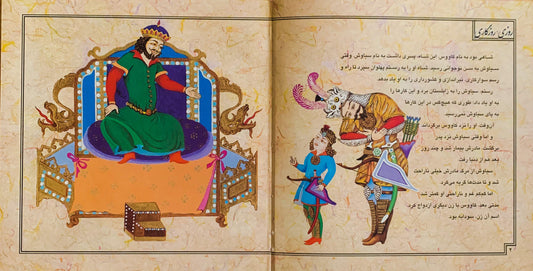 روزی/ روزگاری
شاهی بود به نام کاووس. این شاه، پسری داشت به نام سیاوش. وقتی
سیاوش به سن نوجوانی رسید، شاه او را به رستم پهلوان سپرد تا راه و
رسم سوارکاری، تیراندازی و کشورداری را به او یاد بدهد.
رستم، سیاوش را به زابلستان برد و این کارها را
به او یاد داد؛ طوری که هیچ‌کس در این کارها
به پای سیاوش نمی‌رسید.
آن‌وقت او را نزد کاووس برگرداند.
اما وقتی سیاوش نزد پدر
برگشت، مادرش بیمار شد و چند روز
بعد هم از دنیا رفت.
سیاوش از مرگ مادرش خیلی ناراحت
شد و تا مدت‌ها گریه می‌کرد.
اما کم‌کم غم و ناراحتی او کمتر شد.
مدتی بعد، کاووس با زن دیگری ازدواج کرد.
اسم آن زن، سودابه بود.
۲